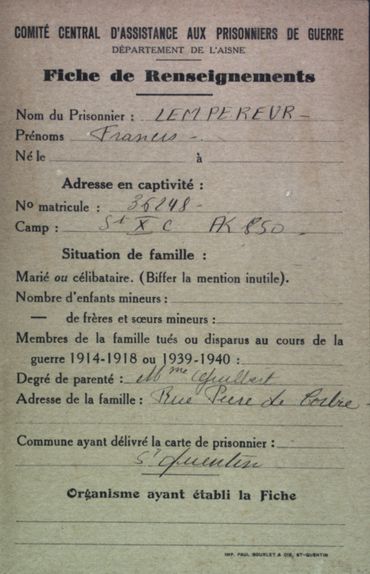 COMITÉ CENTRAL D'ASSISTANCE AUX PRISONNIERS DE GUERRE
DÉPARTEMENT DE L'AISNE
Fiche de Renseignements
Nom du Prisonnier : LEMPEREUR -
Prénoms Francis -
Né le à
Adresse en captivité :
No matricule : 36248 -
Camp : St X C AK 850 -
Situation de famille :
Marié ou célibataire. (Biffer la mention inutile).
Nombre d'enfants mineurs :
— de frères et sœurs mineurs :
Membres de la famille tués ou disparus au cours de la
guerre 1914-1918 ou 1939-1940 :
Degré de parenté : Mme
Adresse de la famille : Rue Pierre de
Commune ayant délivré la carte de prisonnier :
St Quentin
Organisme ayant établi la Fiche
IMP. PAUL BOURLET & CIE, ST-QUENTIN